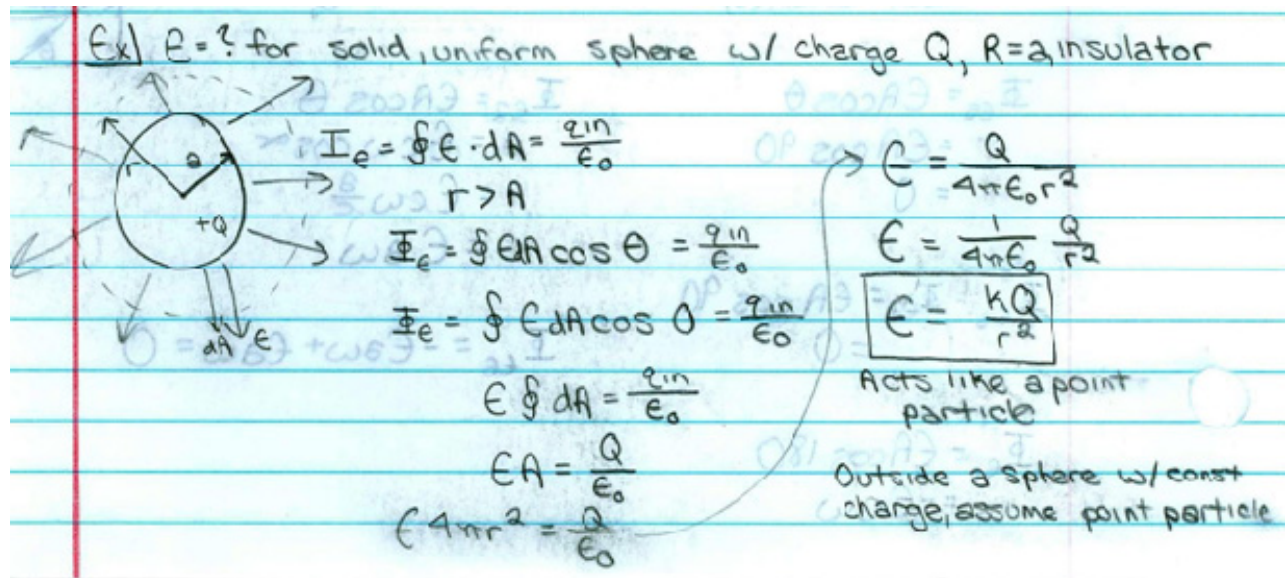 Ex) E = ? for solid, uniform sphere w/ charge Q, R=a, insulator
r
a
+Q
dA E
Φe = ∮ E · dA = qin/ε0
r > A
Φe = ∮ E dA cos θ = qin/ε0
Φe = ∮ E dA cos 0 = qin/ε0
E ∮ dA = qin/ε0
E A = Q/ε0
E 4πr² = Q/ε0
E = Q/4πε0r²
E = 1/4πε0 Q/r²
E = kQ/r²
Acts like a point
particle
Outside a sphere w/ const
charge, assume point particle